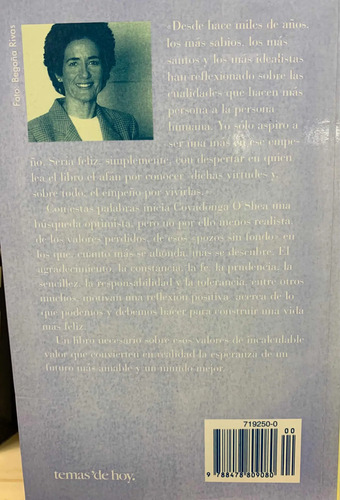 Foto: Begoña Rivas
«Desde hace miles de años,
los más sabios, los más
santos y los más idealistas
han reflexionado sobre las
cualidades que hacen más
persona a la persona
humana. Yo sólo aspiro a
ser una más en ese empe-
ño. Sería feliz, simplemente, con despertar en quien
lea el libro el afán por conocer dichas virtudes y,
sobre todo, el empeño por vivirlas.»
Con estas palabras inicia Covadonga O'Shea una
búsqueda optimista, pero no por ello menos realista,
de los valores perdidos, de esos «pozos sin fondo» en
los que, cuanto más se ahonda, más se descubre. El
agradecimiento, la constancia, la fe, la prudencia, la
sencillez, la responsabilidad y la tolerancia, entre otros
muchos, motivan una reflexión positiva acerca de lo
que podemos y debemos hacer para construir una vida
más feliz.
Un libro necesario sobre esos valores de incalculable
valor que convierten en realidad la esperanza de un
futuro más amable y un mundo mejor.
719250-0
00
9 788478 809080
temas de hoy.